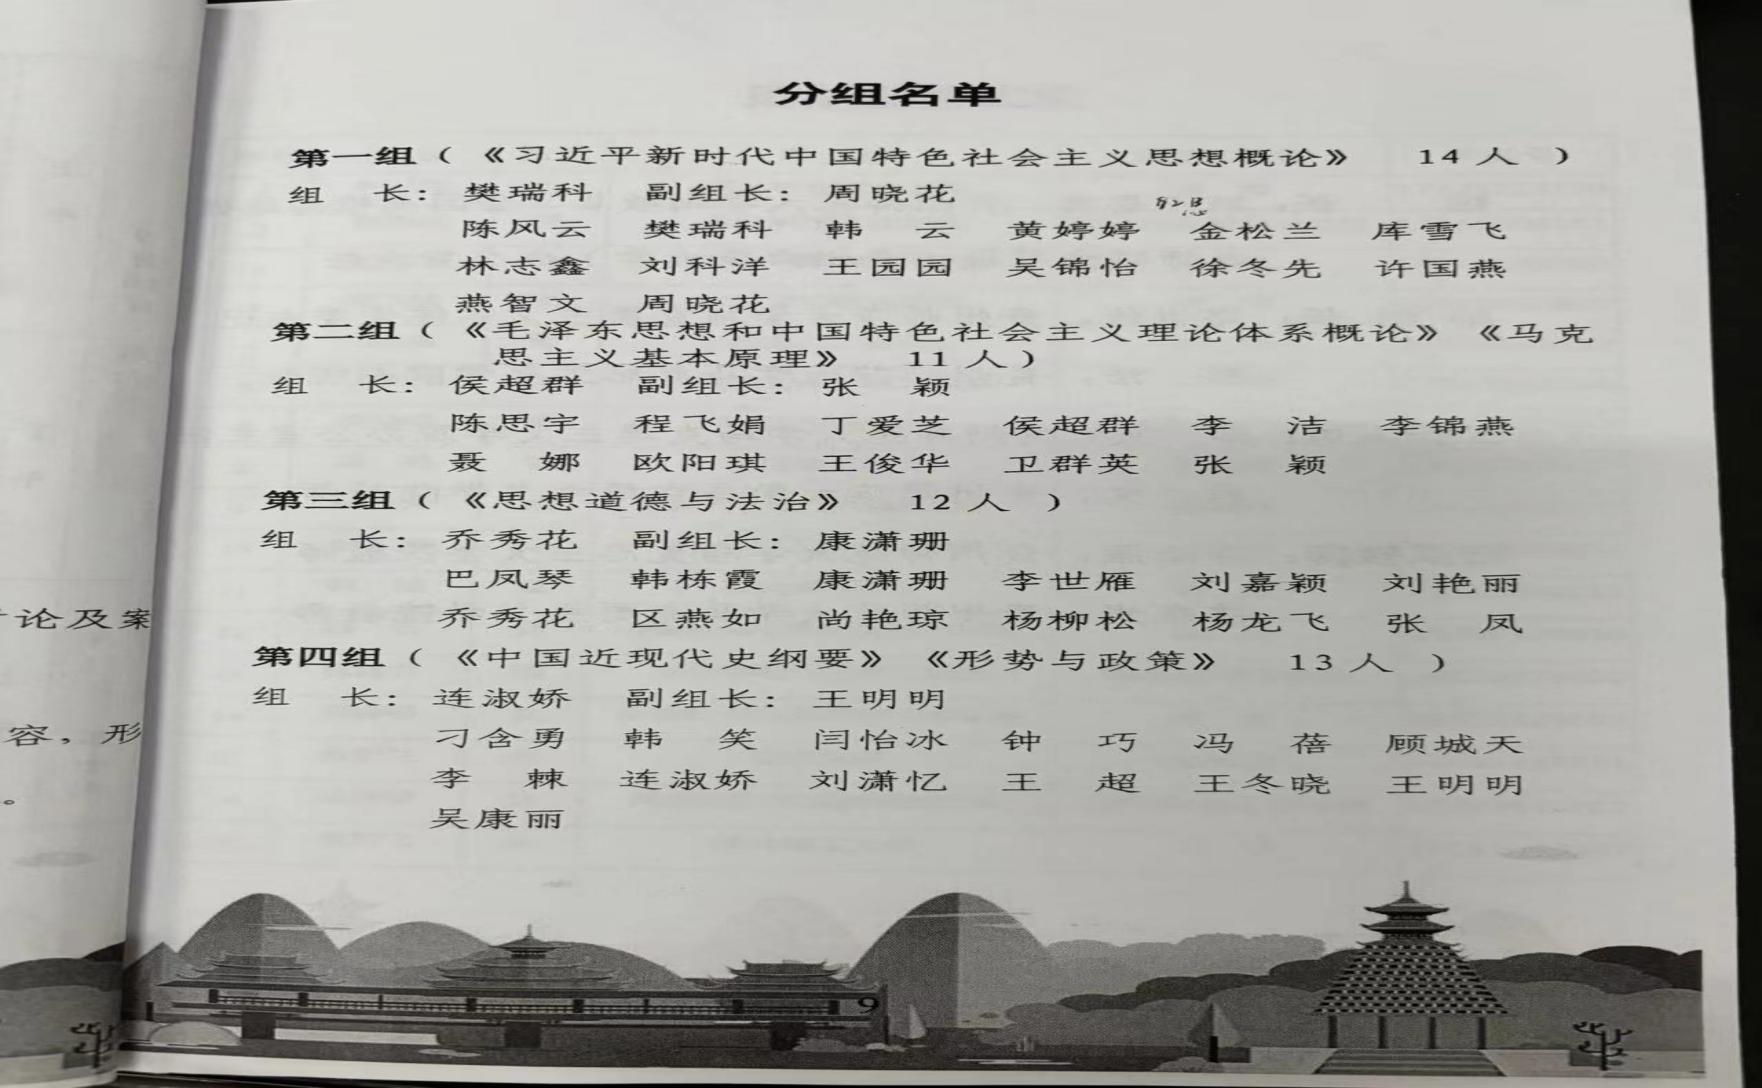 分组名单
第一组（《习近平新时代中国特色社会主义思想概论》 14人）
组 长：樊瑞科 副组长：周晓花
陈风云 樊瑞科 韩 云 黄婷婷 金松兰 库雪飞
林志鑫 刘科洋 王园园 吴锦怡 徐冬先 许国燕
燕智文 周晓花
第二组（《毛泽东思想和中国特色社会主义理论体系概论》《马克
思主义基本原理》 11人）
组 长：侯超群 副组长：张 颖
陈思宇 程飞娟 丁爱芝 侯超群 李 洁 李锦燕
聂 娜 欧阳琪 王俊华 卫群英 张 颖
第三组（《思想道德与法治》 12人）
组 长：乔秀花 副组长：康潇珊
巴凤琴 韩栋霞 康潇珊 李世雁 刘嘉颖 刘艳丽
乔秀花 区燕如 尚艳琼 杨柳松 杨龙飞 张 凤
第四组（《中国近现代史纲要》《形势与政策》 13人）
组 长：连淑娇 副组长：王明明
刁含勇 韩 笑 闫怡冰 钟 巧 冯 蓓 顾城天
李 棘 连淑娇 刘潇忆 王 超 王冬晓 王明明
吴康丽
9
论及案
容，形
。